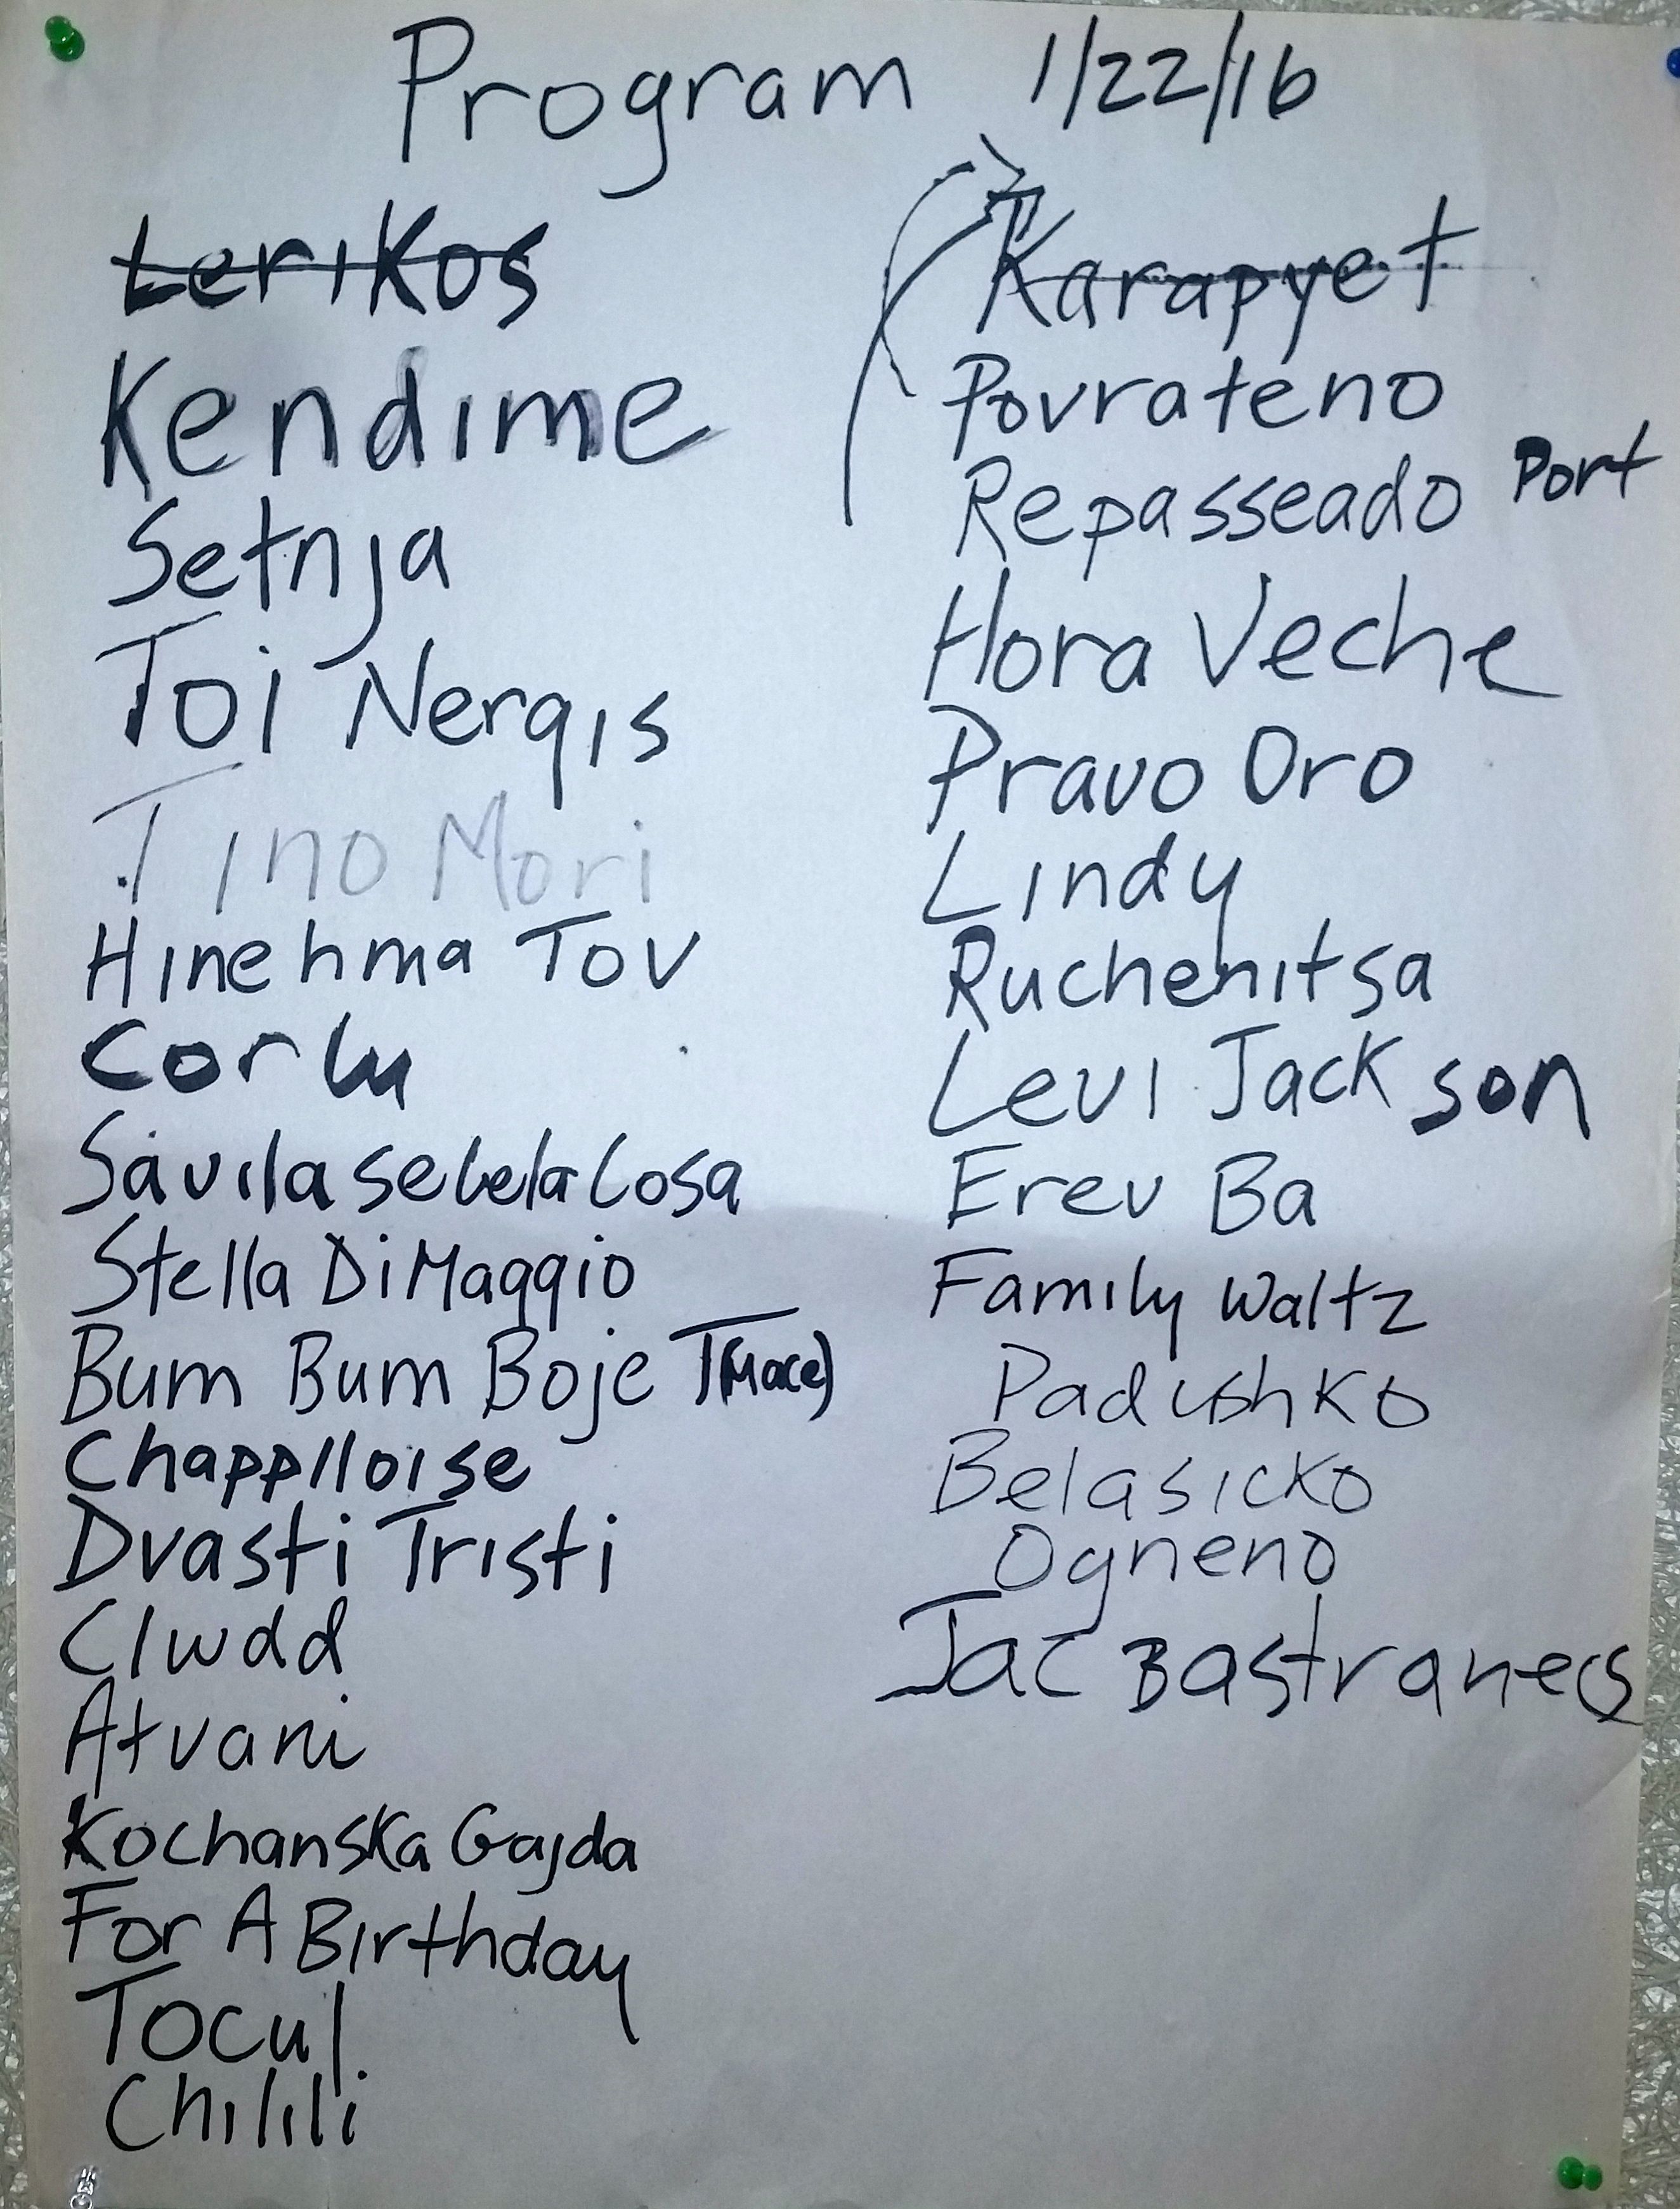 Program 1/22/16
Lerikos
Kendime
Setnja
Toi Nergis
Tino Mori
Hinehma Tov
Corlu
Savila se bela Losa
Stella DiMaggio
Bum Bum Boje T(Mace)
Chapplloise
Dvasti Tristi
Clwdd
Atvani
Kochanska Gajda
For A Birthday
Tocul
Chilili
Karapyet
Povrateno
Repasseado Port
Hora Veche
Pravo Oro
Lindy
Ruchenitsa
Levi Jackson
Erev Ba
Family Waltz
Padushko
Belasicko
Ogneno
Jac Bastranecs